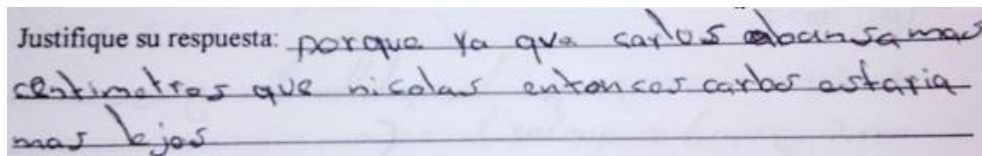 Justifique su respuesta: porque ya que carlos abansa mas
centimetros que nicolas entonces carlos estaria
mas lejos